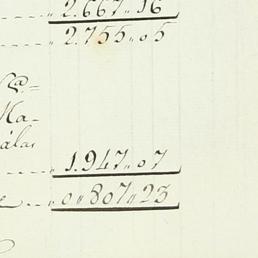 2.667,,16
2.755,,05
Ma-
álas
1.947,,07
0,,807,,23